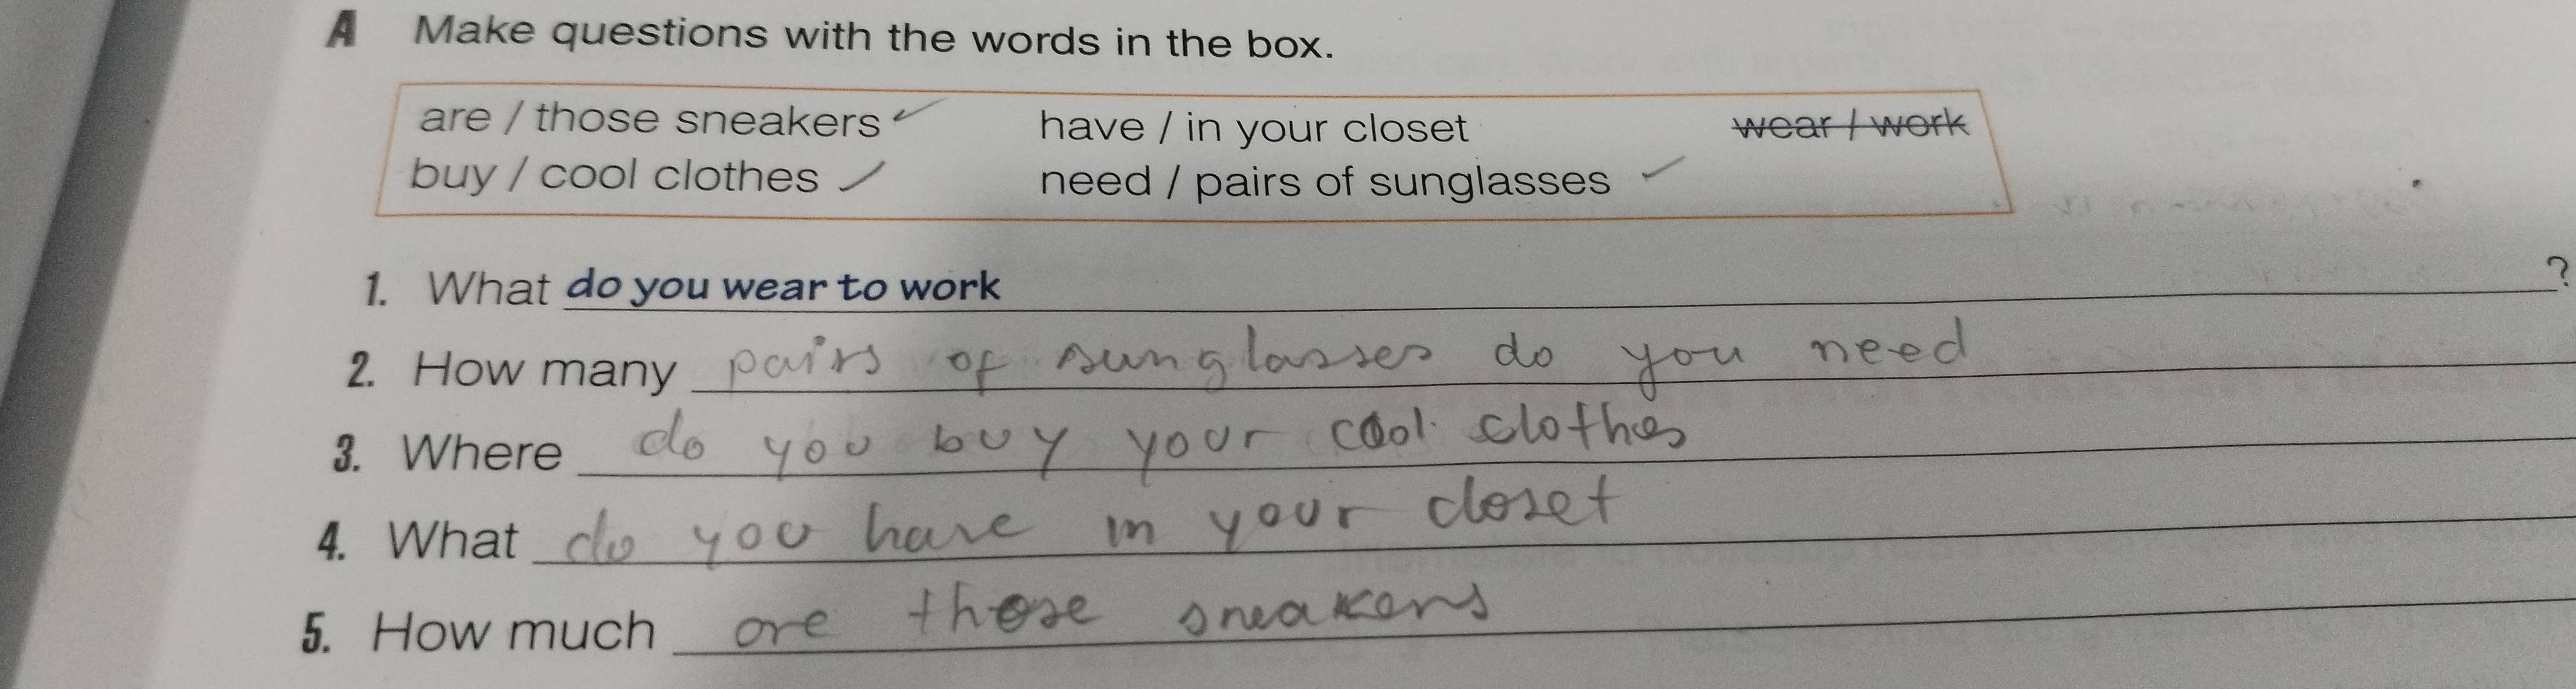 A Make questions with the words in the box.
are / those sneakers ✓ have / in your closet wear / work
buy / cool clothes ✓ need / pairs of sunglasses ✓
1. What do you wear to work ?
2. How many pairs of sunglasses do you need
3. Where do you buy your cool clothes
4. What do you have in your closet
5. How much are those sneakers